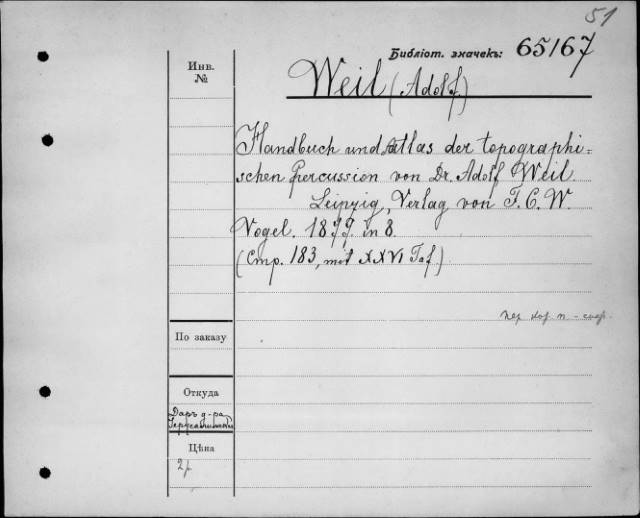 51
Библіот. значекъ: 65167
Инв. №
Weil (Adolf)
Handbuch und Atlas der topographi=
schen Percussion von Dr. Adolf Weil.
Leipzig, Verlag von F. C. W.
Vogel. 1877. in 8.
(Стр. 183, mit XXVI Taf.)
По заказу
Откуда
Даръ д-ра
Цѣна
2 р.